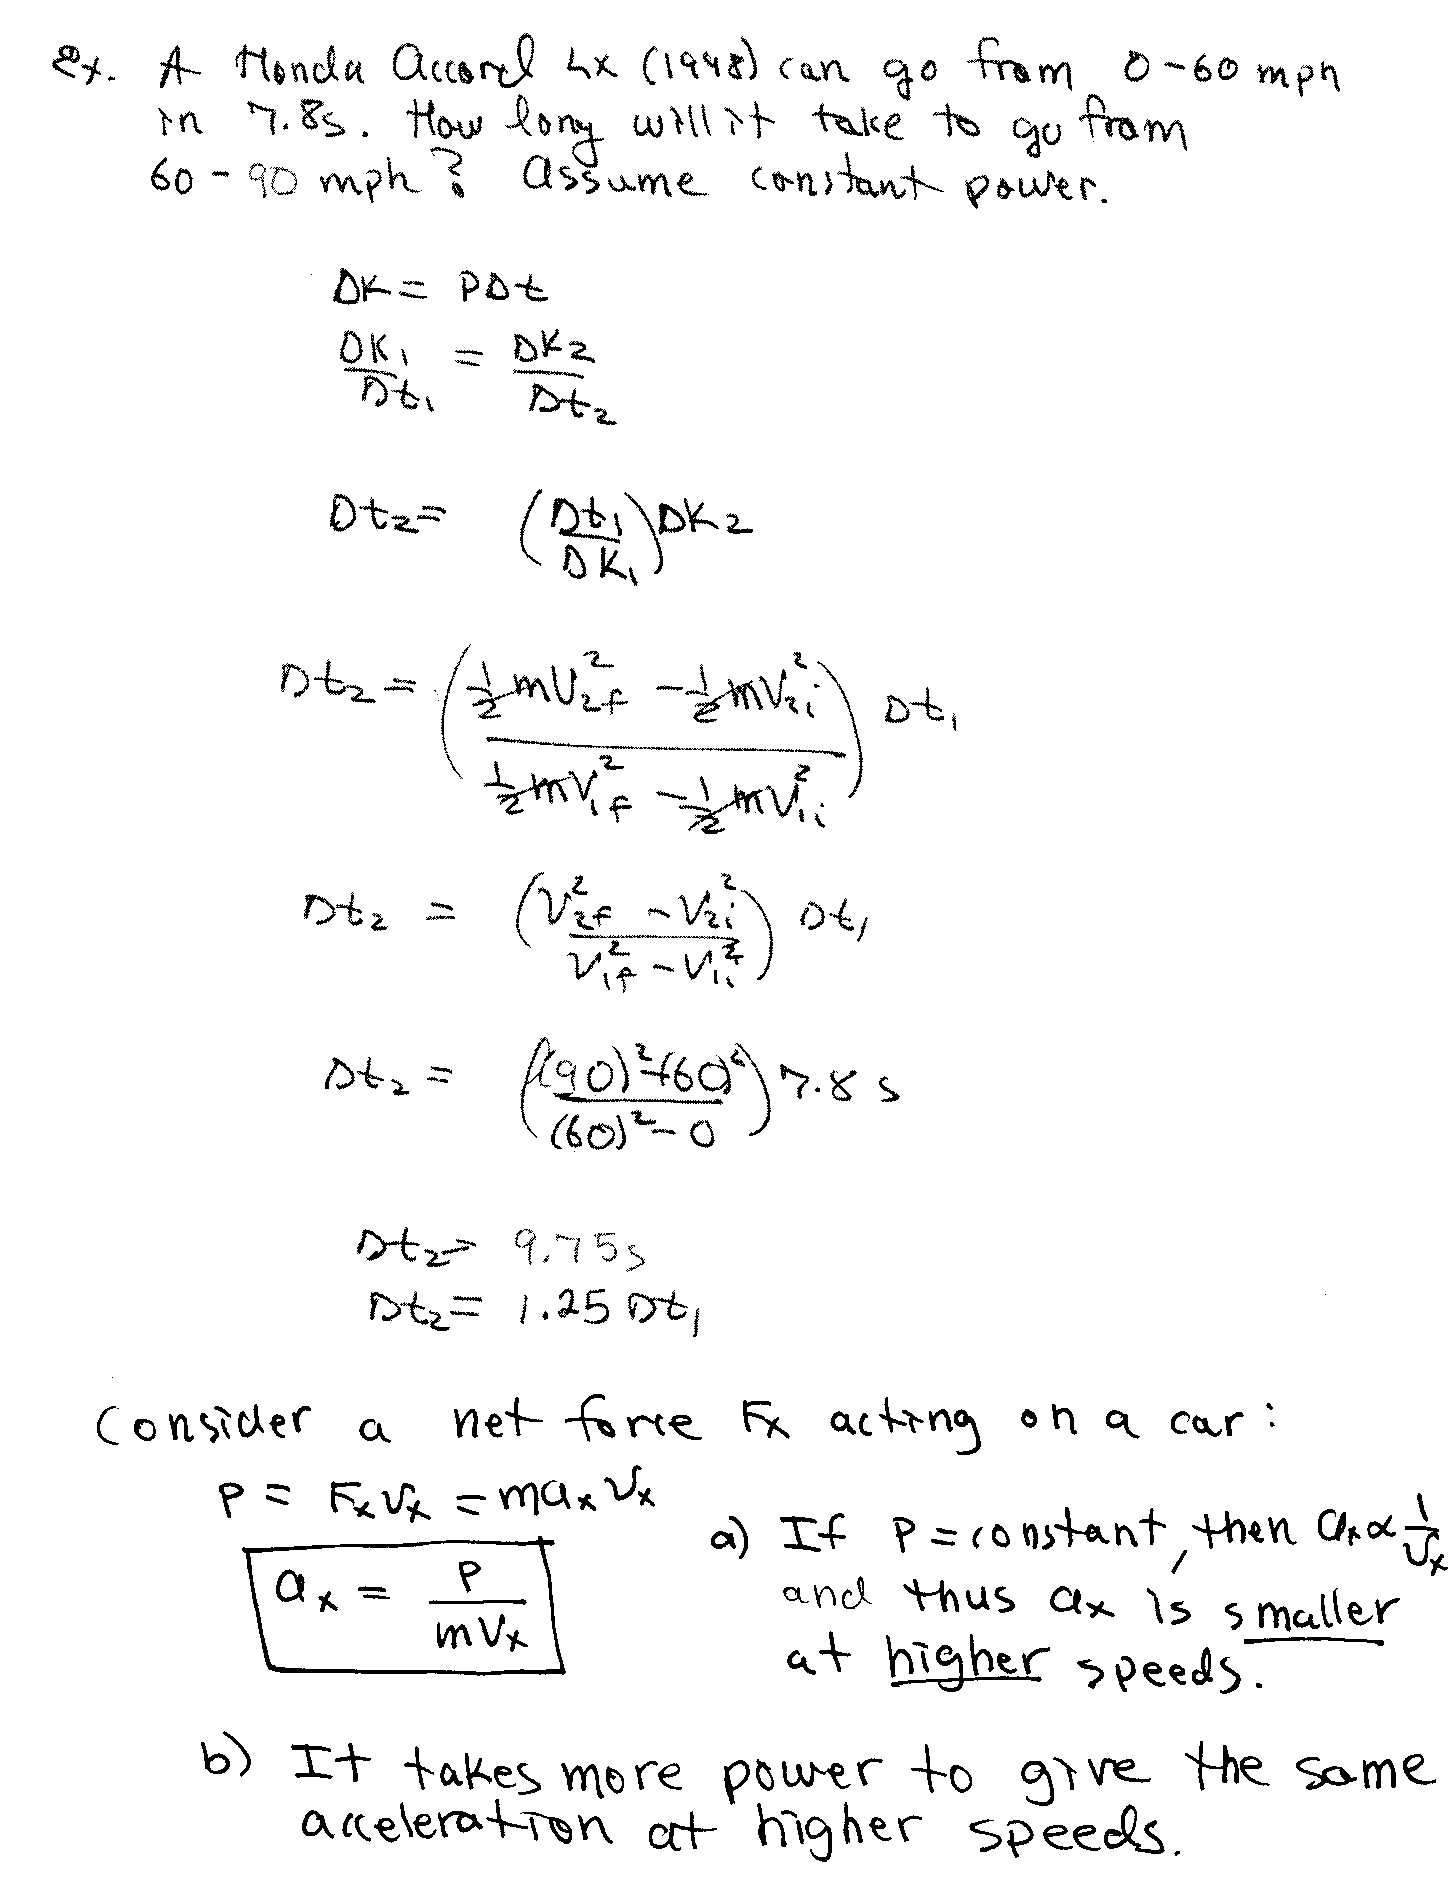 Ex. A Honda Accord LX (1998) can go from 0-60 mph
in 7.8s. How long will it take to go from
60-90 mph? Assume constant power.
ΔK = PΔt
ΔK₁/Δt₁ = ΔK₂/Δt₂
Δt₂ = (Δt₁/ΔK₁) ΔK₂
Δt₂ = ((½mV₂f² - ½mV₂i²)/(½mV₁f² - ½mV₁i²)) Δt₁
Δt₂ = ((V₂f² - V₂i²)/(V₁f² - V₁i²)) Δt₁
Δt₂ = (((90)² - (60)²)/((60)² - 0)) 7.8 s
Δt₂ = 9.75s
Δt₂ = 1.25 Δt₁
Consider a net force Fx acting on a car:
P = FxVx = maxVx
ax = P/mVx
a) If P = constant, then ax ∝ 1/Vx
and thus ax is smaller
at higher speeds.
b) It takes more power to give the same
acceleration at higher speeds.